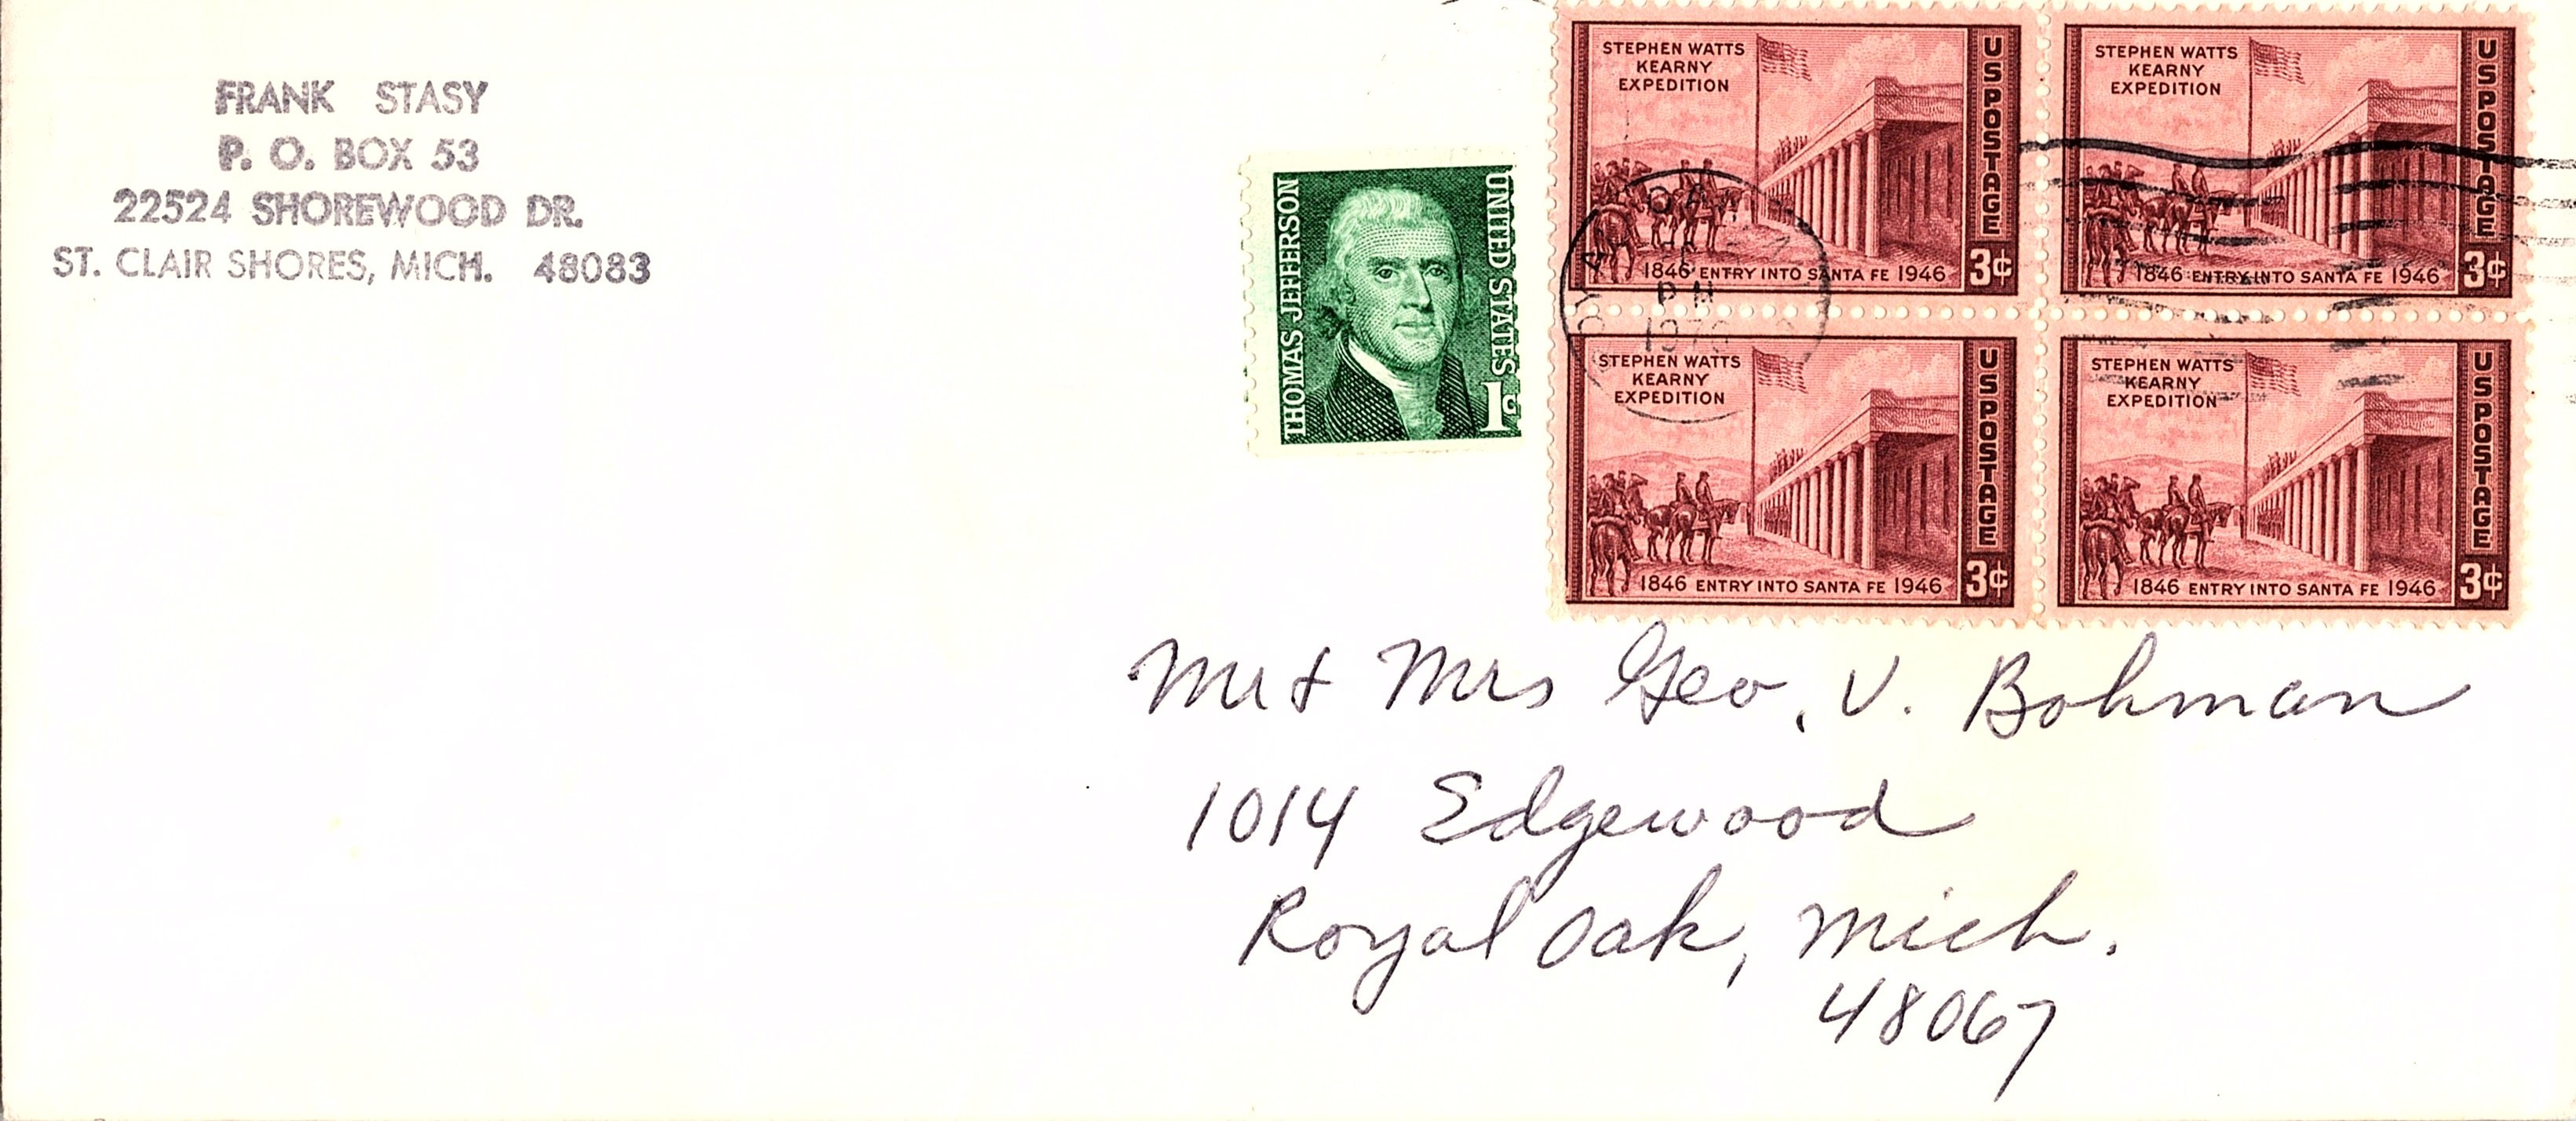 FRANK STASY
P. O. BOX 53
22524 SHOREWOOD DR.
ST. CLAIR SHORES, MICH. 48083
THOMAS JEFFERSON
UNITED STATES
1¢
STEPHEN WATTS
KEARNY
EXPEDITION
US POSTAGE
1846 ENTRY INTO SANTA FE 1946
3¢
STEPHEN WATTS
KEARNY
EXPEDITION
US POSTAGE
1846 ENTRY INTO SANTA FE 1946
3¢
PM
STEPHEN WATTS
KEARNY
EXPEDITION
US POSTAGE
1846 ENTRY INTO SANTA FE 1946
3¢
STEPHEN WATTS
KEARNY
EXPEDITION
US POSTAGE
1846 ENTRY INTO SANTA FE 1946
3¢
Mr & Mrs Geo. V. Bohman
1014 Edgewood
Royal Oak, Mich.
48067